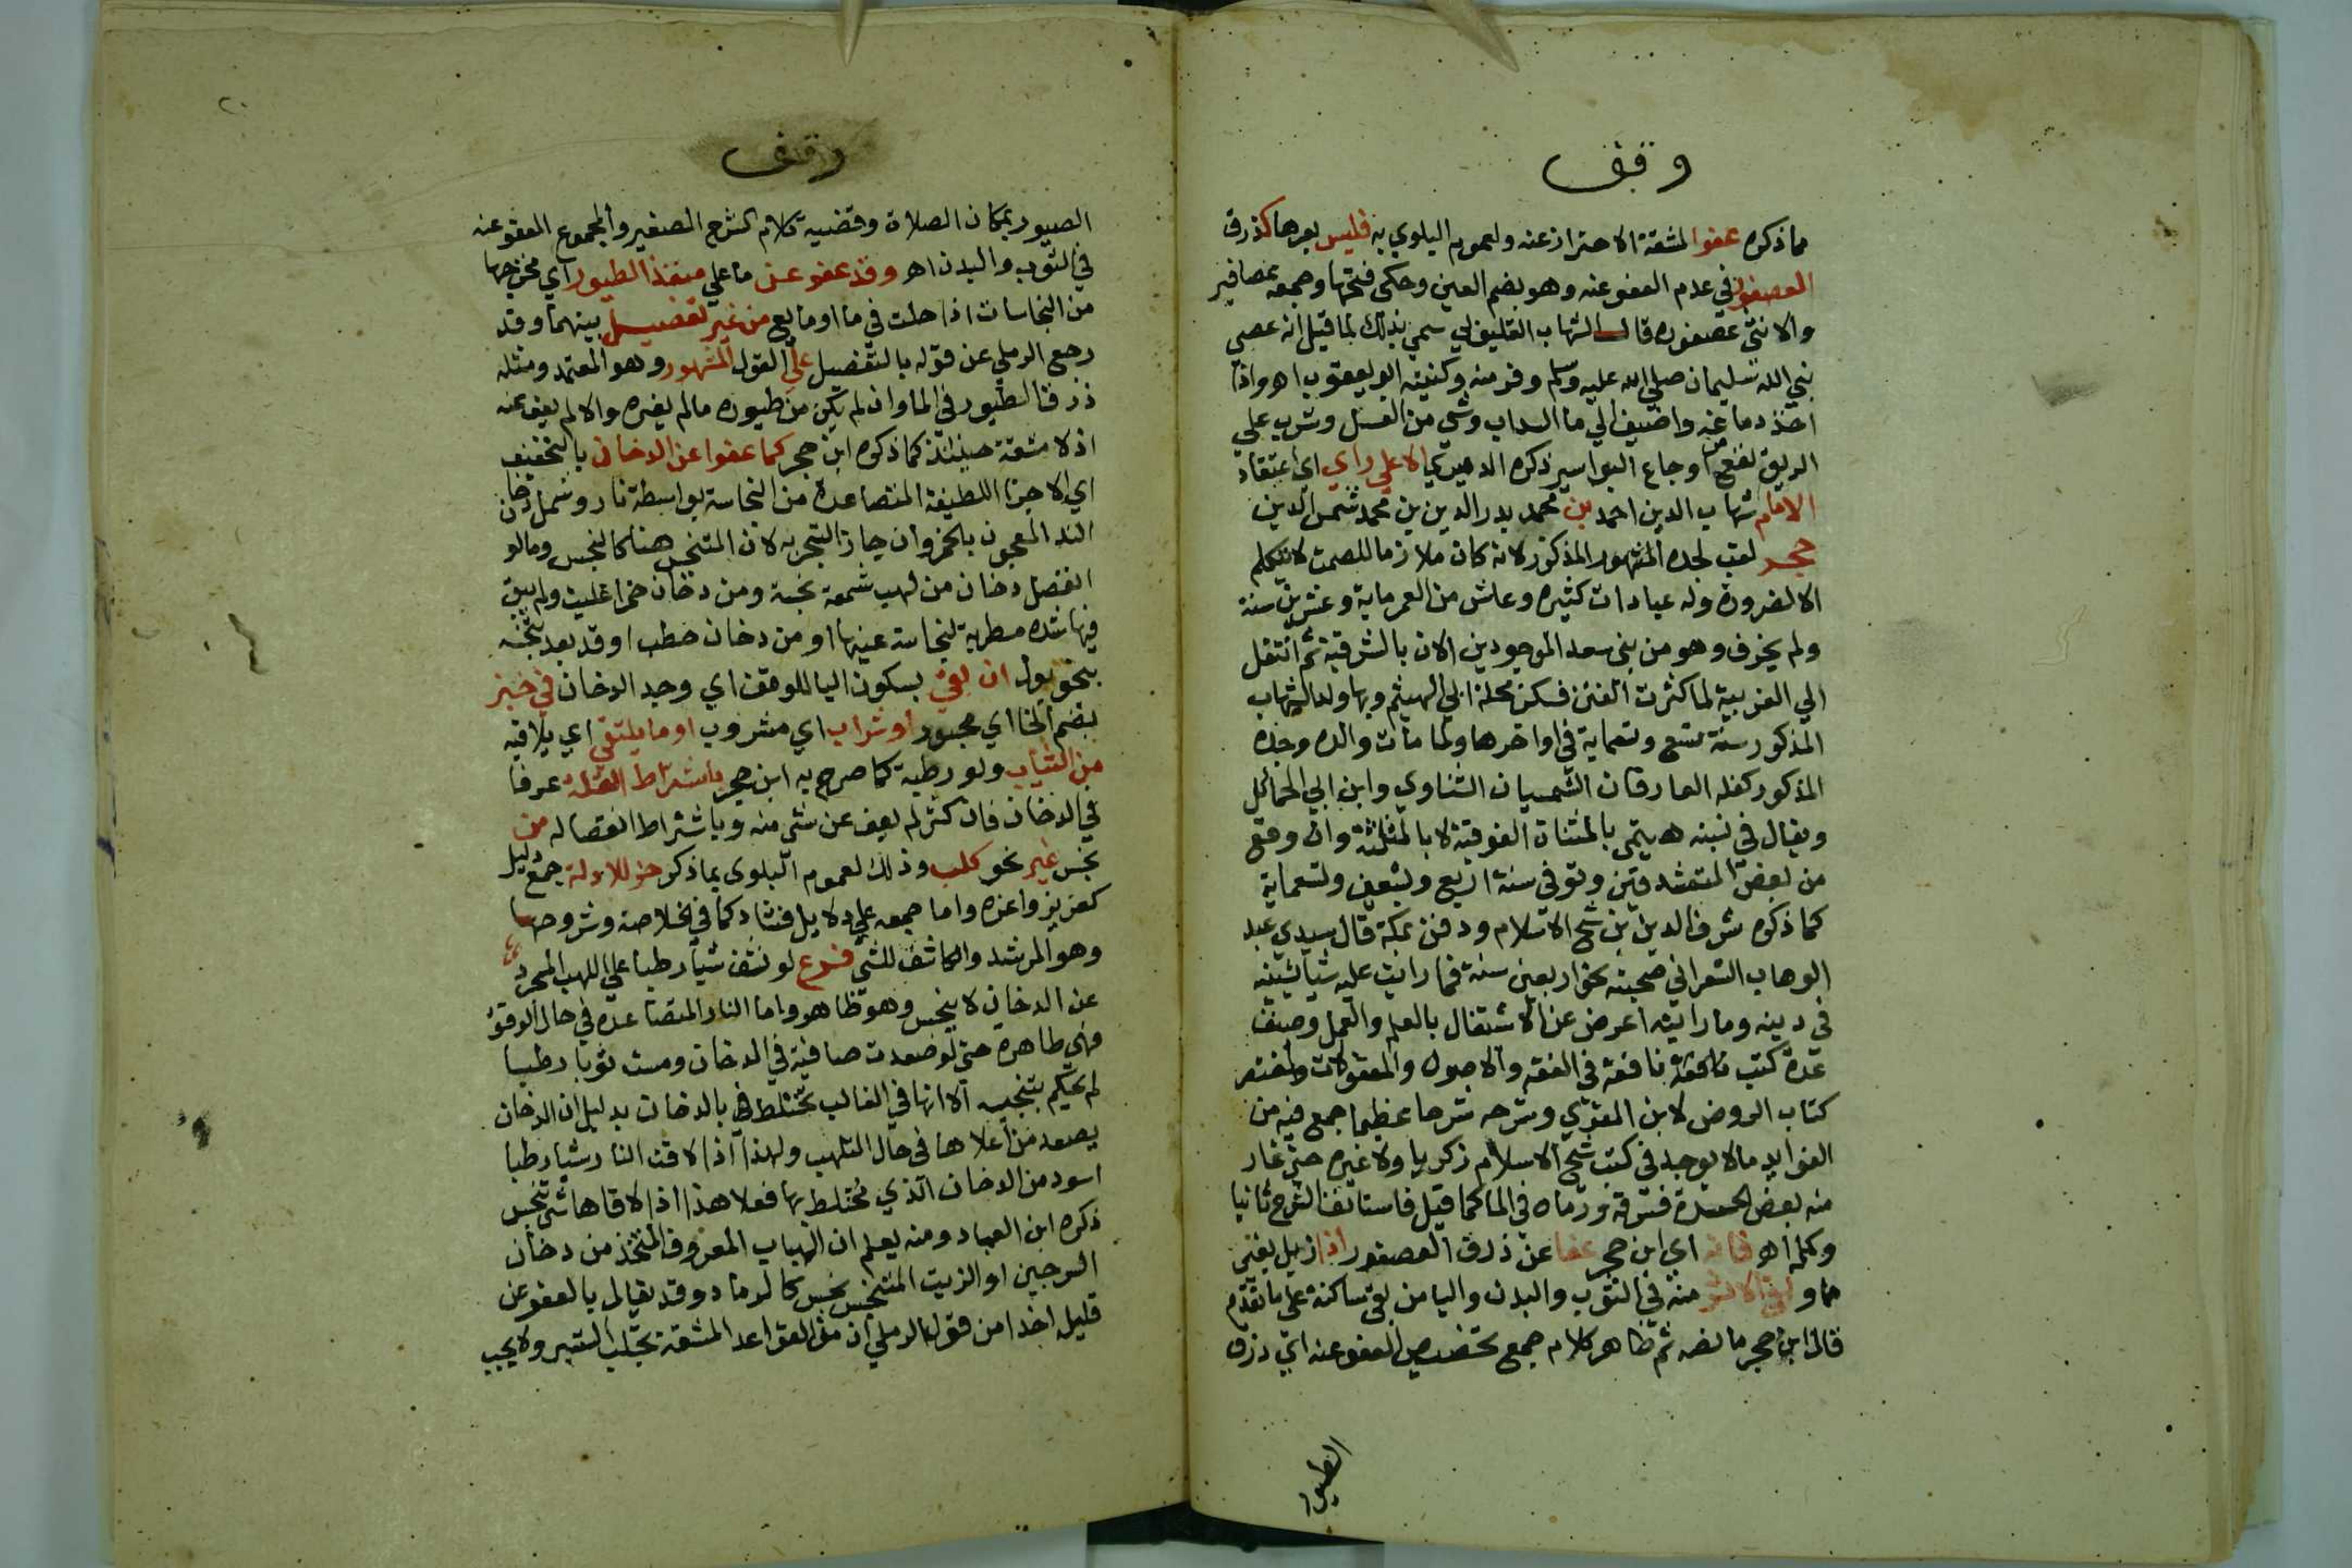 وقف
مما ذكره عفوا لمشقة الاحتراز عنه ولعموم البلوي به فليس بعرها كذرق
العصفور في عدم العفو عنه وهو بضم العين وحكي فتحها وجمعه عصافير
والانثى عصفوره قال الشهاب القليوبي سمي بذلك لما قيل انه عصي
نبي الله سليمان صلي الله عليه وسلم وفر منه وكنيته ابو يعقوب اهـ واذا
اخذ دماغه واضيف الي ما السداب وشي من العسل وشرب علي
الريق نفع من اوجاع البواسير ذكره الدميري الا علي راي اي اعتقاد
الامام شهاب الدين احمد بن محمد بدر الدين بن محمد شمس الدين
حجر لقب لجده المشهور المذكور لانه كان ملازما للصمت لا يتكلم
الا لضرورة وله عبادات كثيره وعاش من العمر ماية وعشرين سنة
ولم يخرف وهو من بني سعد الموجودين الان بالشرقية ثم انتقل
الي الغربية لما كثرت الفتن فسكن محلة ابي الهيثم وبها ولد الشهاب
المذكور سنة تسع وتسعماية في اواخرها ولما مات والده وجده
المذكور كفله العارفان الشمسان الشناوي وابن ابي الحمائل
ويقال في نسبته هيتمي بالمثناة الفوقية لا بالمثلثة وان وقع
من بعض المتمشدقين وتوفي سنة اربع وسبعين وتسعماية
كما ذكره شرف الدين بن شيخ الاسلام ودفن بمكة قال سيدي عبد
الوهاب الشعراني صحبته نحو اربعين سنة فما رايت عليه شيا يشينه
في دينه وما رايته اعرض عن الاشتغال بالعلم والعمل وصنف
عدة كتب نافعة في الفقه والاصول والمعقولات واختصر
كتاب الروض لابن المقري وشرحه شرحا عظيما جمع فيه من
الفوايد ما لا يوجد في كتب شيخ الاسلام زكريا ولا غيره حتى غار
منه بعض الحسدة فسرقه ورماه في الما كما قيل فاستانف الشرح ثانيا
وكمله اهـ فانه اي ابن حجر عفا عن ذرق العصفور اذا ازيل بغير
ما وبقي الاثر منه في الثوب والبدن واليا من بقي ساكنة علي ما تقدم
قال ابن حجر ما نصه ثم ظاهر كلام جمع تخصيص العفو عنه اي ذرق
الطيور
٢٠
وقف
الطيور بمكان الصلاة وقضية كلام الشرح الصغير والمجموع العفو عنه
في الثوب والبدن اهـ وقد عفو عن ما علي منفذ الطيور اي مخرجها
من النجاسات اذا حلت في ما او مايع من غير تفصيل بينهما وقد
رجع الرملي عن قوله بالتفصيل علي القول المشهور وهو المعتمد ومثله
ذرق الطيور في الما وان لم يكن من طيوره ما لم يغيره والا لم يعف عنه
اذ لا مشقة حينئذ كما ذكره ابن حجر كما عفوا عن الدخان بالتخفيف
اي الاجزا اللطيفة المتصاعدة من النجاسة بواسطة نار وشمل دخان
الند المعجون بالخمر وان جاز التبخر به لان المتنجس هنا كالنجس وما لو
انفصل دخان من لهب شمعة نجسة ومن دخان خمر اغليت ولم يبق
فيها شدة مطربة لنجاسة عينها او من دخان حطب اوقد بعد تنجسه
بنحو بول ان بقي بسكون اليا للوقف اي وجد الدخان في خبز
بضم الخا اي مخبوز او شراب اي مشروب او ما يلتقي اي يلاقيه
من الثياب ولو رطبة كما صرح به ابن حجر باشتراط القلة عرفا
في الدخان فان كثر لم يعف عن شي منه وباشتراط انفصاله من
نجس غير نحو كلب وذلك لعموم البلوى بما ذكر خذ للادلة جمع دليل
كعزيز واعزه واما جمعه علي دلايل فشاذ كما في الخلاصة وشروحها
وهو المرشد والكاشف للشي فرع لو نشف شيا رطبا علي اللهب المجرد
عن الدخان لا ينجس وهو ظاهر واما النار المتصاعده في حال الوقود
فهي طاهرة حتى لو صعدت صافية في الدخان ومست ثوبا رطبا
لم يحكم بتنجسه الا انها في الغالب تختلط بالدخان بدليل ان الدخان
يصعد من اعلاها في حال التلهب ولهذا اذا لاقت النار شيا رطبا
اسود من الدخان الذي يختلط بها فعلا هذا اذا لاقاها شي تنجس
ذكره ابن العماد ومنه يعلم ان الهباب المعروف المتخذ من دخان
السرجين او الزيت المتنجس نجس كالرماد وقد يقال بالعفو عن
قليله اخذا من قول الرملي ان من القواعد المشقة تجلب التيسير ولا يجب